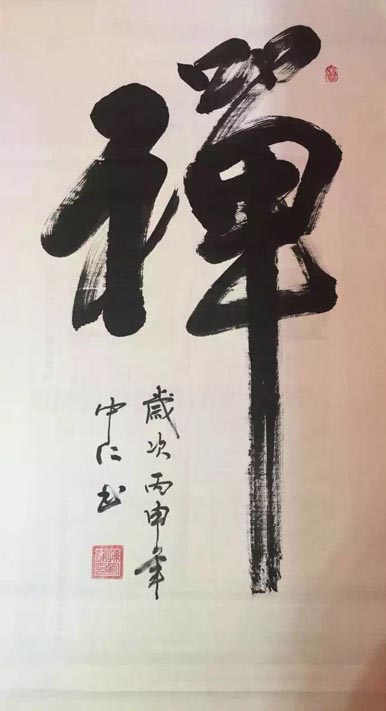 禪
歲次丙申年
中仁书